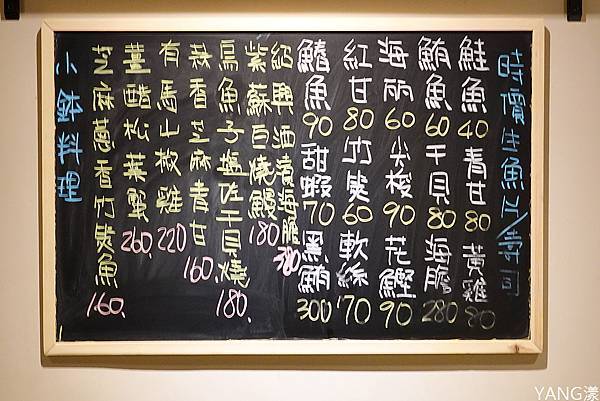 時價生魚片/壽司
鮭魚40 青甘80 黃雞80
鮪魚60 干貝80 海膽280
海丽60 尖梭90 花鰹90
紅甘80 竹筴60 軟絲70
鰆魚90 甜蝦70 黑鮪300
紹興酒漬海膽380
紫蘇白燒鰻180
烏魚子鹽佐干貝燒180.
蒜香芝麻青甘160
有馬山椒雞220
薑醋松葉蟹260.
芝麻蔥香竹筴魚160.
小缽料理
YANG漾